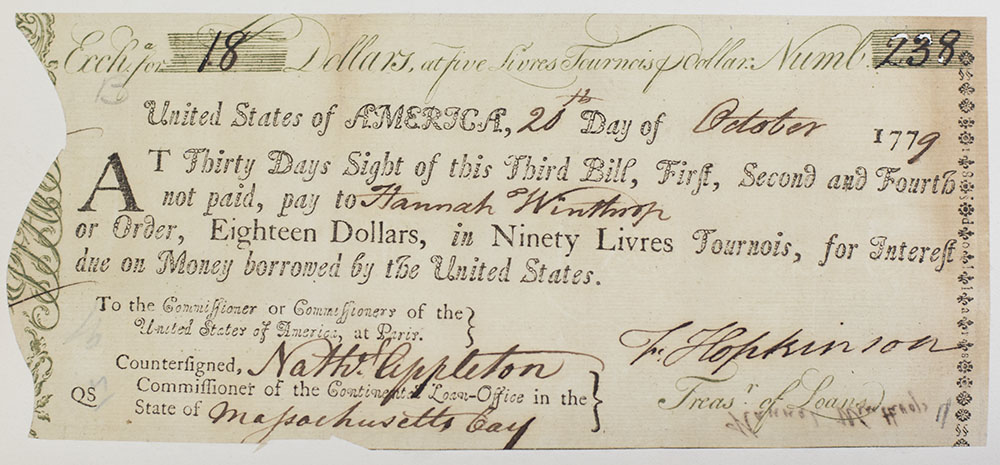 Exchᵃ. for 18 Dollars, at five Livres Tournois ⅌ Dollar. Numb. 238
United States of AMERICA, 20th Day of October 1779
AT Thirty Days Sight of this Third Bill, Firſt, Second and Fourth
not paid, pay to Hannah Winthrop
or Order, Eighteen Dollars, in Ninety Livres Tournois, for Intereſt
due on Money borrowed by the United States.
To the Commiſſioner or Commiſſioners of the
United States of America, at Paris.
Counterſigned, Nathl. Appleton
QS
Commiſſioner of the Continental Loan-Office in the
State of Massachusetts Bay
F. Hopkinson
Treasʳ. of Loans